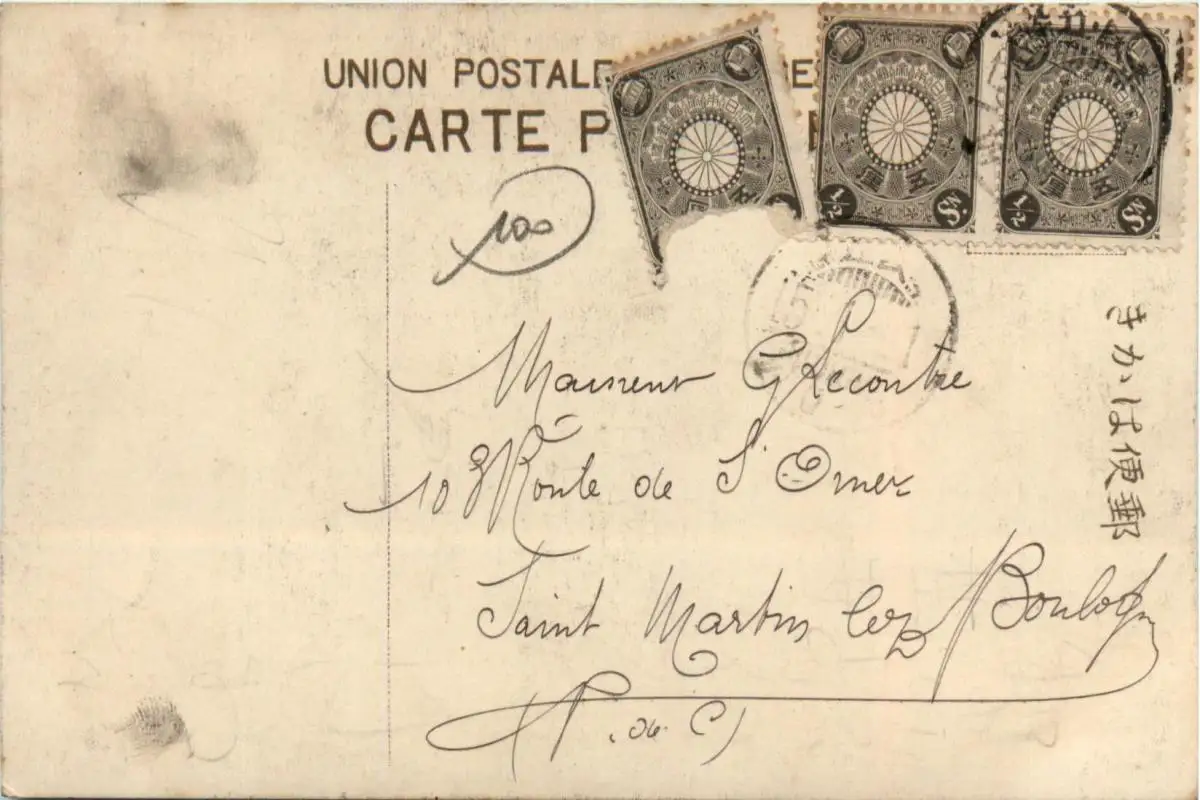 UNION POSTALE
CARTE P
100
Monsieur G Lecontre
108 Route de St Omer
Saint Martin lez Boulogn
(P. de C)
きかは便郵
1/2
1/2